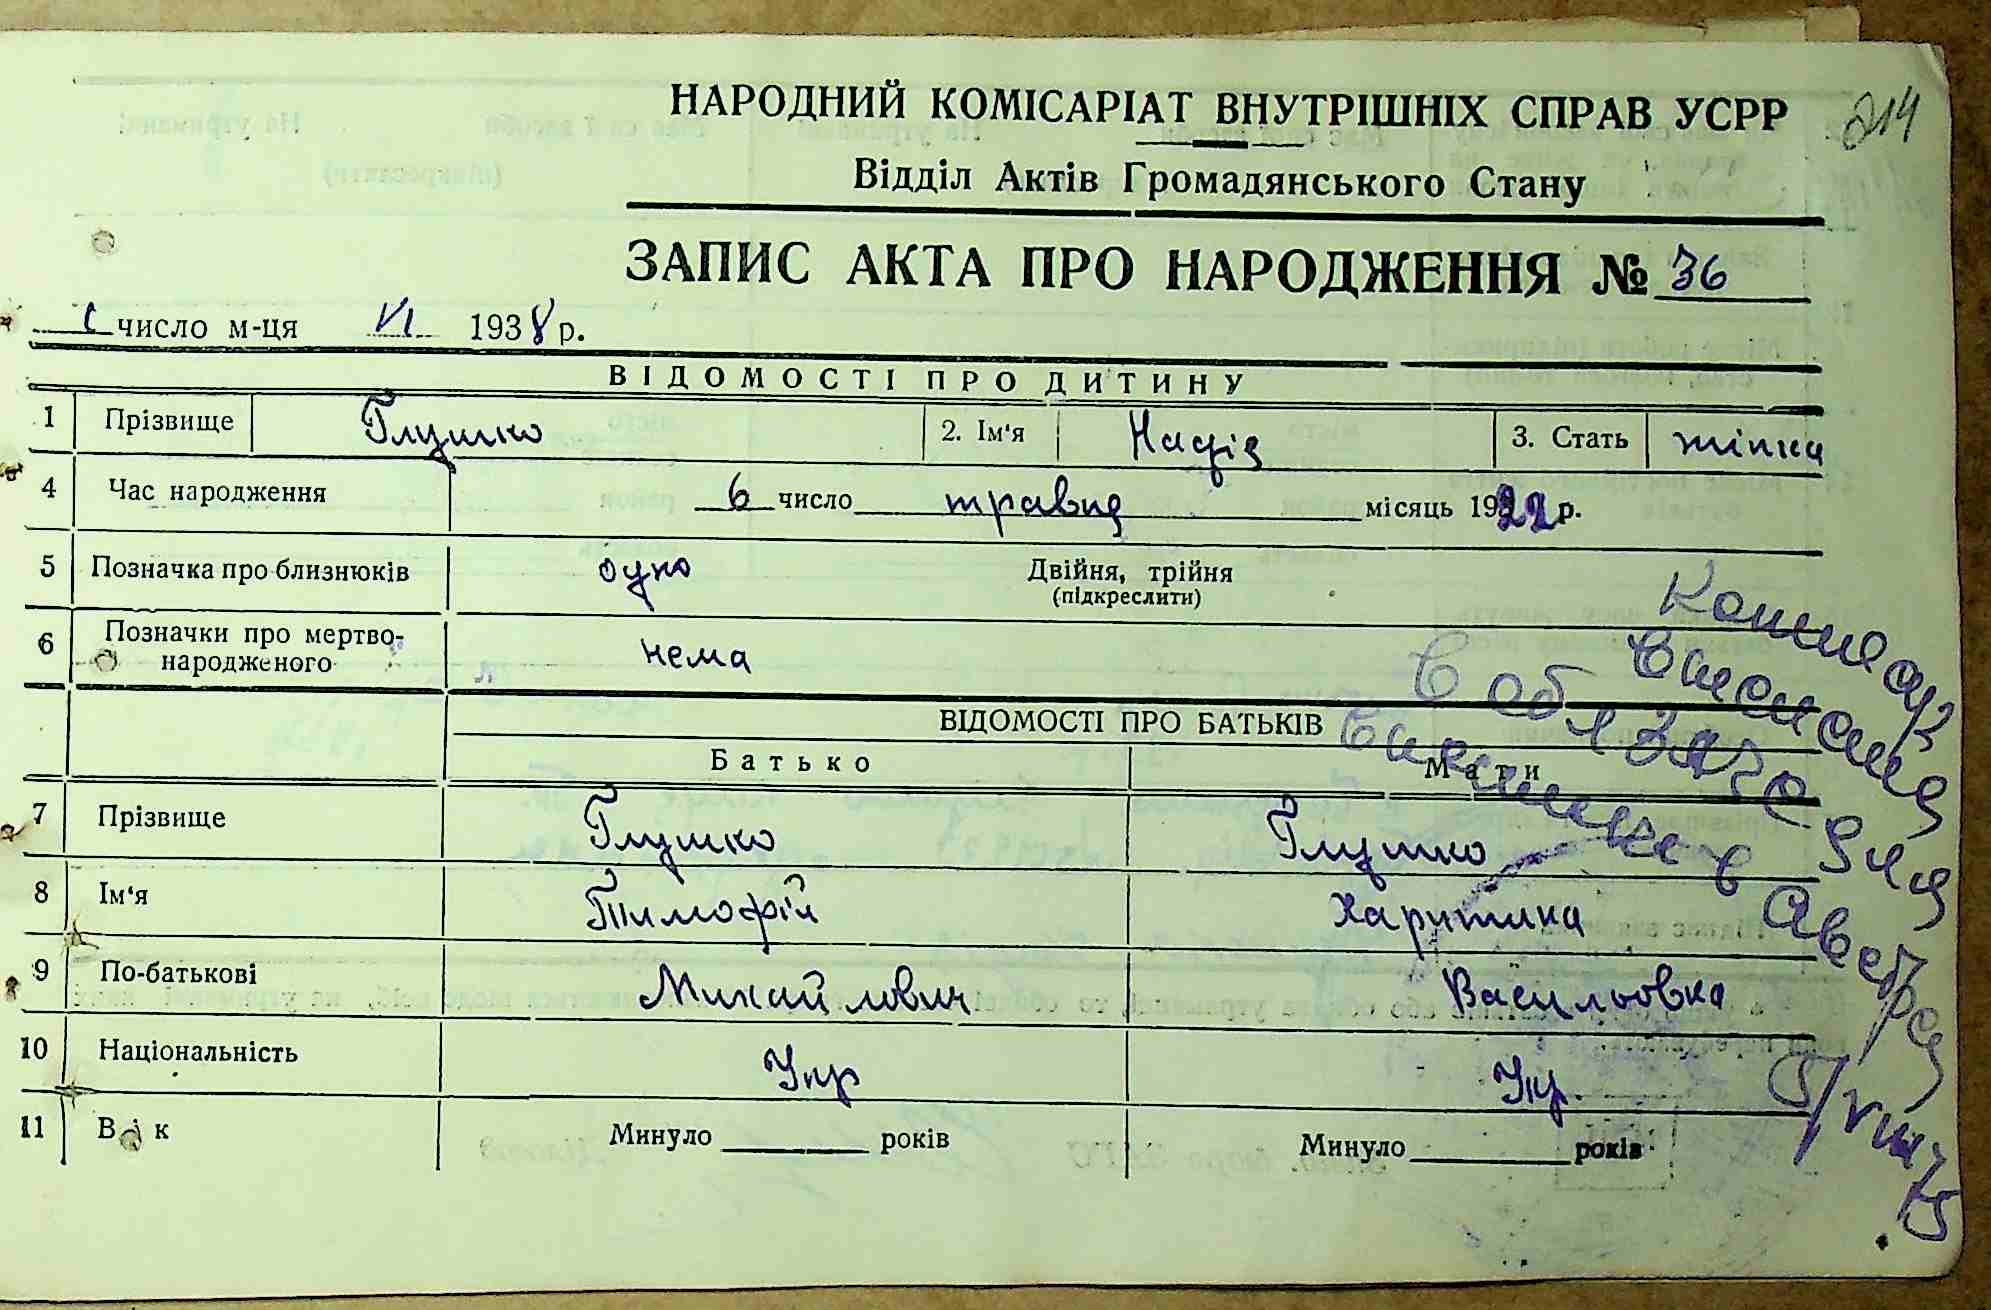 214
НАРОДНИЙ КОМІСАРІАТ ВНУТРІШНІХ СПРАВ УСРР
Відділ Актів Громадянського Стану
ЗАПИС АКТА ПРО НАРОДЖЕННЯ № 36
число м-ця VI 1938 р.
ВІДОМОСТІ ПРО ДИТИНУ
1 Прізвище Глушко 2. Ім'я Надія 3. Стать жінка
4 Час народження 6 число травня місяць 1922 р.
5 Позначка про близнюків одно Двійня, трійня
(підкреслити)
6 Позначки про мертво-
народженого нема
ВІДОМОСТІ ПРО БАТЬКІВ
Батько Мати
7 Прізвище Глушко Глушко
8 Ім'я Тимофій Харитина
9 По-батькові Михайлович Васильовна
10 Національність Укр Укр.
11 Вік Минуло років Минуло років
в Австрію